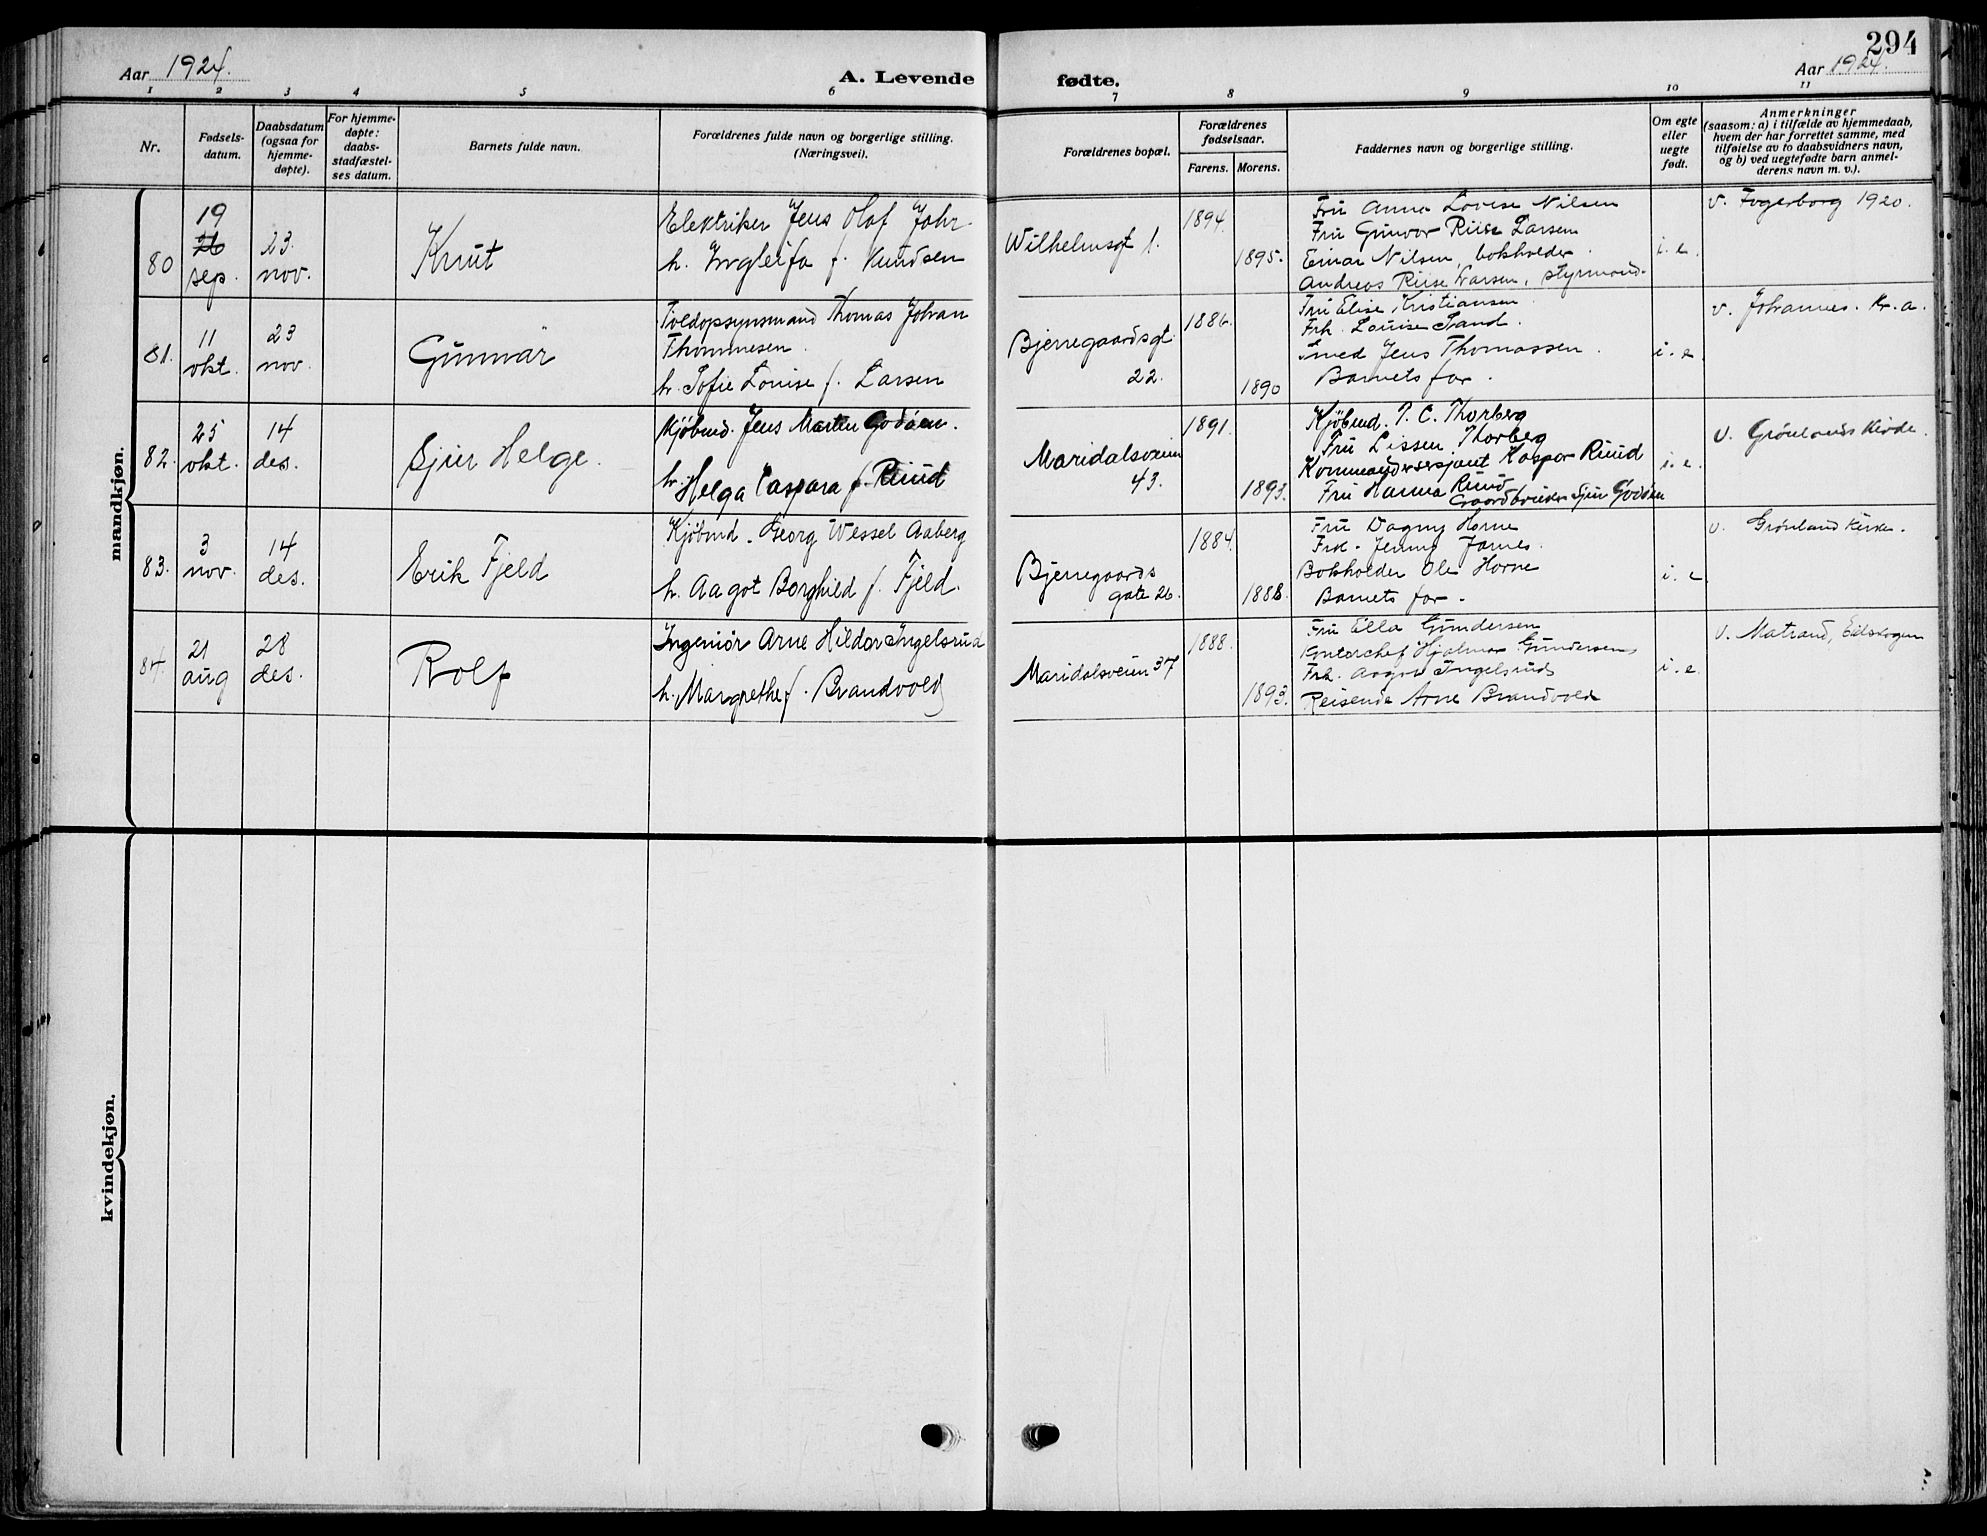 294
Aar 1924.
A. Levende
fødte.
Aar 1924.
1 2 3 4 5 6 7 8 9 10 11
Nr.
Fødsels-
datum.
Daabsdatum
(ogsaa for
hjemme-
døpte).
For hjemme-
døpte:
daabs-
stadfæstel-
ses datum.
Barnets fulde navn.
Forældrenes fulde navn og borgerlige stilling.
(Næringsvei).
Forældrenes bopæl.
Forældrenes
fødselsaar.
Farens. Morens.
Faddernes navn og borgerlige stilling.
Om egte
eller
uegte
født.
Anmerkninger
(saasom: a) i tilfælde av hjemmedaab,
hvem der har forrettet samme, med
tilføielse av to daabsvidners navn,
og b) ved uegtefødte barn anmel-
derens navn m. v.).
mandkjøn.
80
19
26
sep.
23
nov.
Knut
Elektriker Jens Olaf Johr
h. Ingleifa f. Knudsen
Wilhelmsgt 1.
1894.
1895.
Fru Anna Lovise Nilsen
Fru Gunvor Riise Larsen
Einar Nilsen, bokholder.
Andreas Riise Larsen, styrmand.
i. e.
v. Fagerborg 1920.
81.
11
okt.
23
nov.
Gunnar
Toldopsynsmand Thomas Johan
Thommesen.
h. Sofie Louise f. Larsen
Bjerregaardsgt.
22.
1886.
1890
Fru Elise Kristiansen.
Frk. Louise Sand.
Smed Jens Thomassen.
Barnets far.
i. e
v. Johannes. Kr. a.
82.
25
okt.
14
des.
Sjur Helge.
Kjøbmd. Jens Martin Godøen.
h. Helga Caspara f. Ruud
Maridalsveien
43.
1891.
1893.
Kjøbmd. T. C. Thorberg
Fru Lissen Thorberg
Kommandersersjant Kaspar Ruud
Fru Hanna Ruud
Gaardbruker Sjur Godøen
i. e.
v. Grønlands Kirke.
83.
3
nov.
14
des.
Erik Fjeld
Kjøbmd. Georg Wessel Aaberg
h. Aagot Borghild f. Fjeld.
Bjerregaards
gate 26.
1884.
1888.
Fru Dagny Horne
Frk. Jenny
Bokholder Ole Horne
Barnets far.
i. e
v. Grønland kirke.
84.
21
aug
28
des.
Rolf
Ingeniør Arne Hildor Ingelsrud
h. Margrethe f. Brandvold
Maridalsveien 37
1888.
1893.
Fru Ella Gundersen
Kontorchef Hjalmar Gundersen,
Frk. Aagot Ingelsrud
Reisende Arne Brandvold
i. e.
v. Matrand, Eidskogen
kvindekjøn.